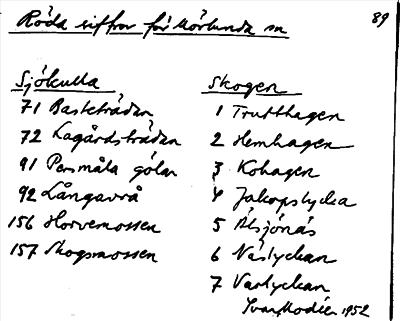 Röda siffror för Mörlunda sn
89
Sjökulla
71 Basteträdan
72 Lagårdsträdan
91 Persmåla gölar
92 Långavrå
156 Horvemossen
157 Skogsmossen
Skogen
1 Trutthagen
2 Hemhagen
3 Kohagen
4 Jakopslycka
5 Älsjönäs
6 Näslyckan
7 Vaslyckan
Ivar Modéer 1952